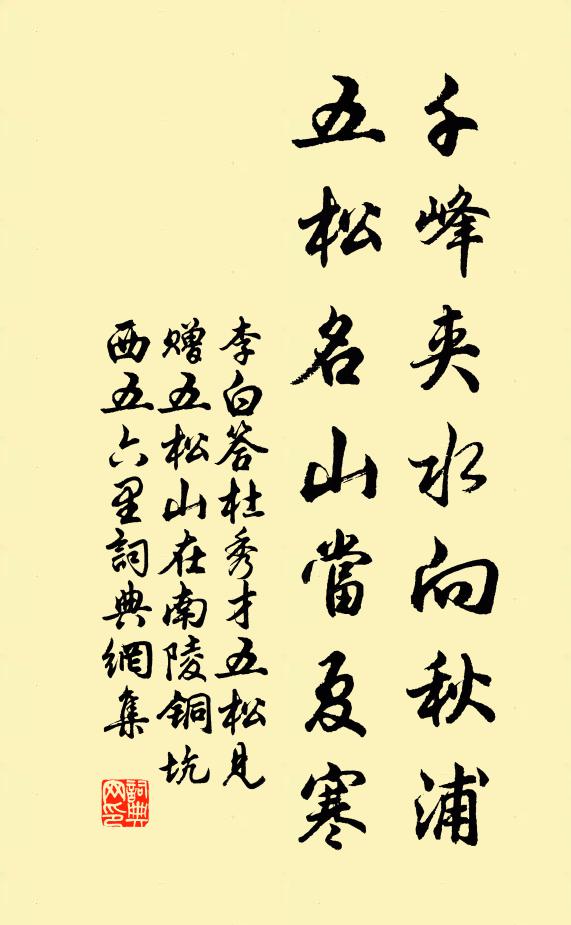 千峰夾水向秋浦
五松名山當夏寒
李白答杜秀才五松見
赠五松山在南陵铜坑
西五六里詞典網集
詞典网印